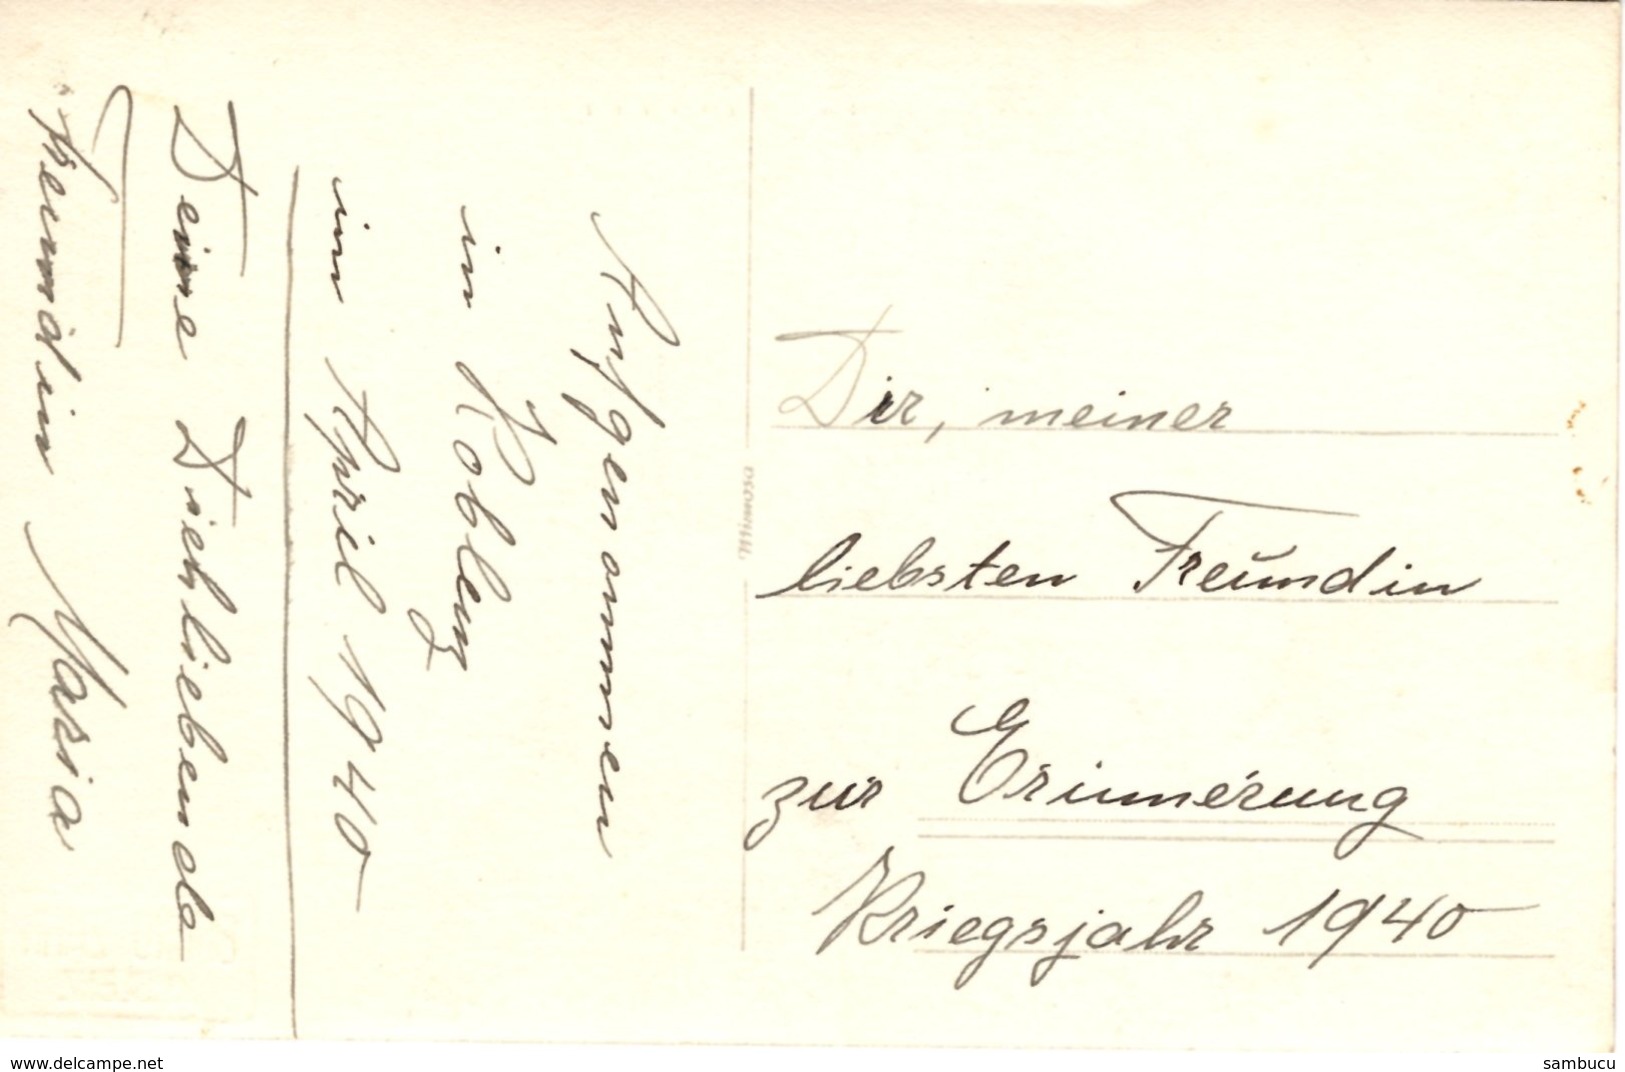 Dir, meiner
liebsten Freundin
zur Erinnerung
Kriegsjahr 1940
Aufgenommen
in Koblenz
im April 1940
Deine Dichliebende
Freundin Maria
Mimosa
www.delcampe.net
sambucu